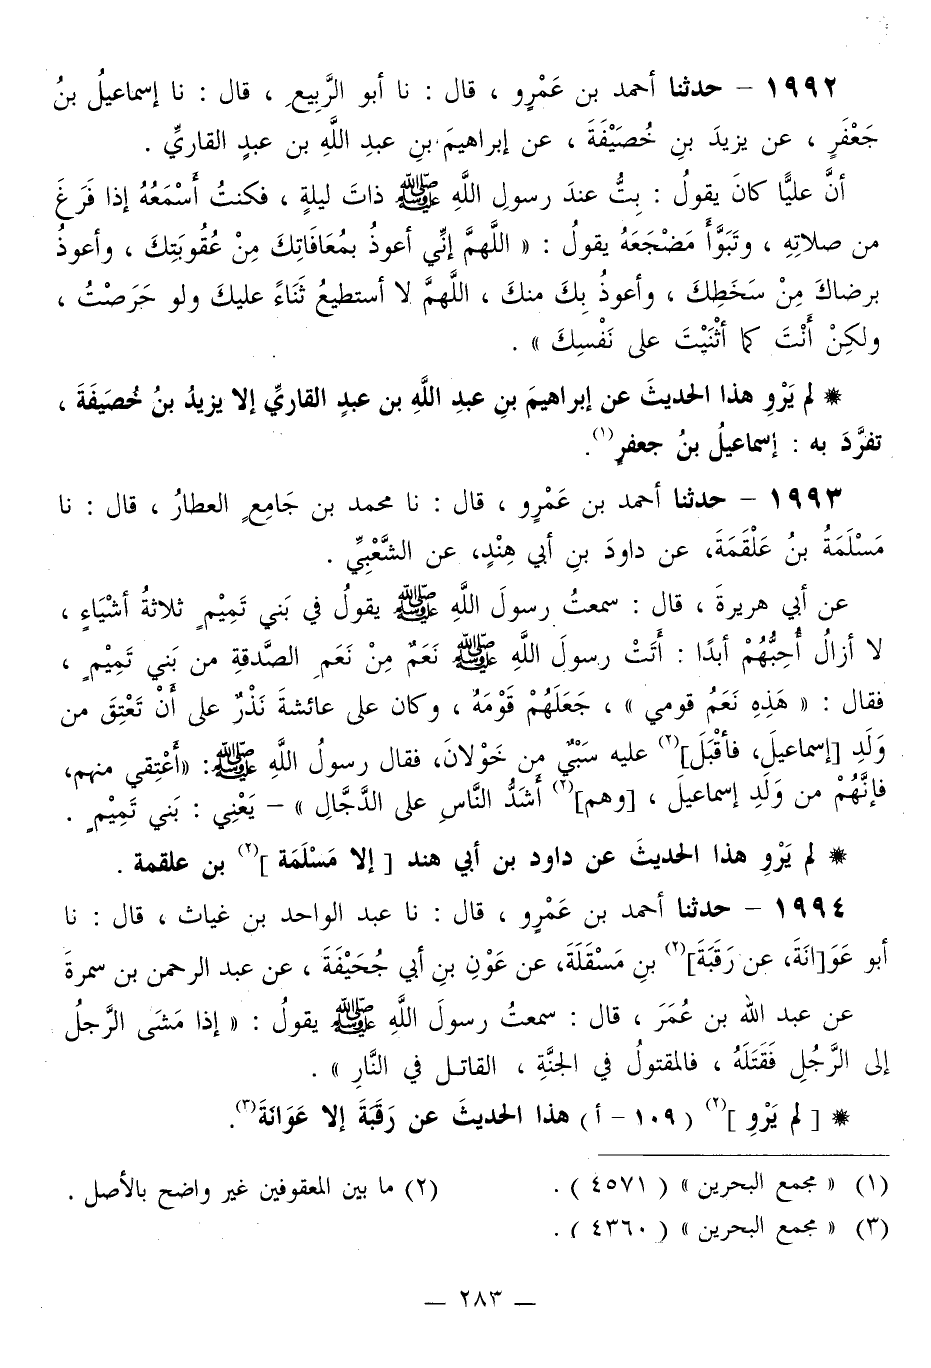 ١٩٩٢ - حدثنا أحمد بن عَمْرٍو ، قال : نا أبو الرَّبِيعِ ، قال : نا إسماعيلُ بنُ
جَعْفَرٍ ، عن يزيدَ بنِ خُصَيْفَةَ ، عن إبراهيمَ بنِ عبدِ اللَّهِ بن عبدٍ القاريِّ .
أنَّ عليًّا كانَ يقولُ : بِتُّ عندَ رسولِ اللَّهِ ﷺ ذاتَ ليلةٍ ، فكنتُ أَسْمَعُهُ إذا فَرَغَ
من صلاتِهِ ، وتَبَوَّأَ مَضْجَعَهُ يقولُ : « اللَّهمَّ إنِّي أعوذُ بمُعَافَاتِكَ مِنْ عُقُوبَتِكَ ، وأعوذُ
برضاكَ مِنْ سَخَطِكَ ، وأعوذُ بِكَ منكَ ، اللَّهمَّ لا أستطيعُ ثَنَاءً عليكَ ولو حَرَصْتُ ،
ولكِنْ أَنْتَ كما أثْنَيْتَ على نَفْسِكَ » .
* لم يَرْوِ هذا الحديثَ عن إبراهيمَ بنِ عبدِ اللَّهِ بن عبدٍ القاريِّ إلا يزيدُ بنُ خُصَيفَةَ ،
تفرَّدَ به : إسماعيلُ بنُ جعفرٍ(١).
١٩٩٣ - حدثنا أحمد بن عَمْرٍو ، قال : نا محمد بن جَامِعٍ العطارُ ، قال : نا
مَسْلَمَةُ بنُ عَلْقَمَةَ، عن داودَ بنِ أبي هِنْدٍ، عن الشَّعْبِيِّ .
عن أبي هريرةَ ، قال : سمعتُ رسولَ اللَّهِ ﷺ يقولُ في بَني تَمِيْمٍ ثلاثةُ أشْيَاءٍ ،
لا أزالُ أُحِبُّهُمْ أبدًا : أَتَتْ رسولَ اللَّهِ ﷺ نَعَمٌ مِنْ نَعَمِ الصَّدقةِ من بَني تَمِيْمٍ ،
فقال : « هَذِهِ نَعَمُ قومي » ، جَعَلَهُمْ قَوْمَهُ ، وكان على عائشةَ نَذْرٌ على أَنْ تَعْتِقَ من
وَلَدِ [إسماعيلَ، فأَقْبَلَ](٢) عليه سَبْيٌ من خَوْلانَ، فقال رسولُ اللَّهِ ﷺ: «أَعْتِقي منهم،
فإنَّهُمْ من وَلَدِ إسماعيلَ ، [وهم](٢) أَشَدُّ النَّاسِ على الدَّجَّالِ » - يَعْنِي : بَني تَمِيْمٍ .
* لم يَرْوِ هذا الحديثَ عن داود بن أبي هند [ إلا مَسْلَمَة ](٢) بن علقمة .
١٩٩٤ - حدثنا أحمد بن عَمْرٍو ، قال : نا عبد الواحد بن غياث ، قال : نا
أبو عَوَ[انَة، عن رَقَبَةَ](٢) بنِ مَسْقَلَةَ، عن عَوْنِ بنِ أبي جُحَيْفَةَ ، عن عبد الرحمن بن سمرةَ
عن عبد اللَّه بن عُمَرَ ، قال : سمعتُ رسولَ اللَّهِ ﷺ يقولُ : « إذا مَشَى الرَّجلُ
إلى الرَّجُلِ فَقَتَلَهُ ، فالمقتولُ في الجنَّةِ ، القاتل في النَّارِ » .
* [ لم يَرْوِ ](٢) ( ١٠٩ - أ ) هذا الحديثَ عن رَقَبَةَ إلا عَوَانَةَ(٣).
(١) « مجمع البحرين » ( ٤٥٧١ ) .
(٢) ما بين المعقوفين غير واضح بالأصل .
(٣) « مجمع البحرين » ( ٤٣٦٠ ) .
— ٢٨٣ —